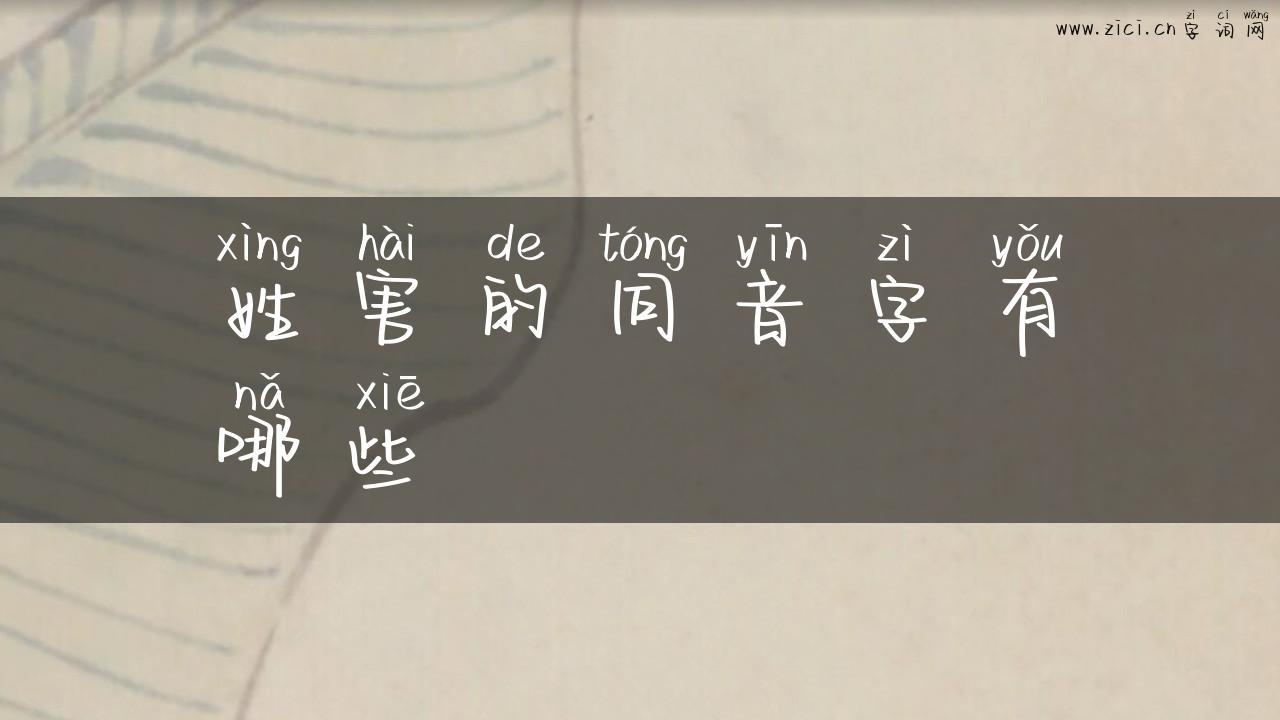 zì cí wǎng
www.zici.cn 字 词 网
xìng hài de tóng yīn zì yǒu
姓 害 的 同 音 字 有
nǎ xiē
哪 些